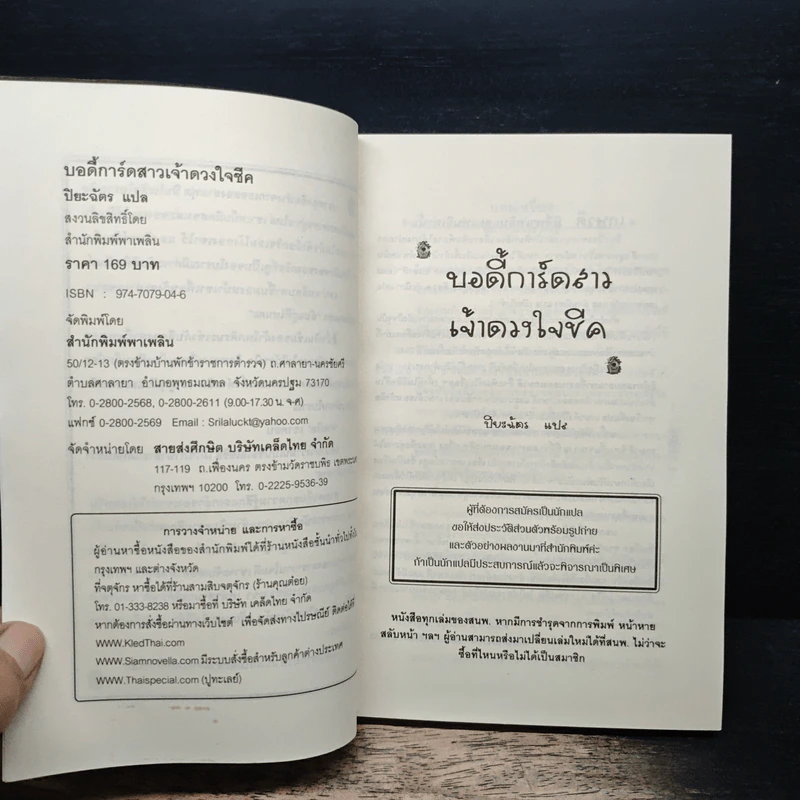 บอดี้การ์ดสาวเจ้าดวงใจชีค
ปิยะฉัตร แปล
สงวนลิขสิทธิ์โดย
สำนักพิมพ์พาเพลิน
ราคา 169 บาท
ISBN : 974-7079-04-6
จัดพิมพ์โดย
สำนักพิมพ์พาเพลิน
50/12-13 (ตรงข้ามบ้านพักข้าราชการตำรวจ) ถ.ศาลายา-นครชัยศรี
ตำบลศาลายา อำเภอพุทธมณฑล จังหวัดนครปฐม 73170
โทร. 0-2800-2568, 0-2800-2611 (9.00-17.30 น. จ-ศ)
แฟกซ์ 0-2800-2569 Email : Srilaluckt@yahoo.com
จัดจำหน่ายโดย สายส่งศึกษิต บริษัทเคล็ดไทย จำกัด
117-119 ถ.เฟื่องนคร ตรงข้ามวัดราชบพิธ
กรุงเทพฯ 10200 โทร. 0-2225-9536-39
การวางจำหน่าย และการหาซื้อ
ผู้อ่านหาซื้อหนังสือของสำนักพิมพ์ได้ที่ร้านหนังสือชั้นนำทั่วไปทั้งใน
กรุงเทพฯ และต่างจังหวัด
ที่จตุจักร หาซื้อได้ที่ร้านสามสิบจตุจักร (ร้านคุณต๋อย)
โทร. 01-333-8238 หรือมาซื้อที่ บริษัท เคล็ดไทย จำกัด
หากต้องการสั่งซื้อผ่านทางเว็บไซต์ เพื่อจัดส่งทางไปรษณีย์ ติดต่อได้ที่
WWW.KledThai.com
WWW.Siamnovella.com มีระบบสั่งซื้อสำหรับลูกค้าต่างประเทศ
WWW.Thaispecial.com (ปูทะเลย์)
บอดี้การ์ดสาว
เจ้าดวงใจชีค
ปิยะฉัตร แปล
ผู้ที่ต้องการสมัครเป็นนักแปล
ขอให้ส่งประวัติส่วนตัวพร้อมรูปถ่าย
และตัวอย่างผลงานมาที่สำนักพิมพ์ค่ะ
ถ้าเป็นนักแปลมีประสบการณ์แล้วจะพิจารณาเป็นพิเศษ
หนังสือทุกเล่มของสนพ. หากมีการชำรุดจากการพิมพ์ หน้าหาย
สลับหน้า ฯลฯ ผู้อ่านสามารถส่งมาเปลี่ยนเล่มใหม่ได้ที่สนพ. ไม่ว่าจะ
ซื้อที่ไหนหรือไม่ได้เป็นสมาชิก